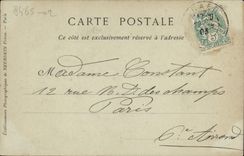 8465 - 2
CARTE POSTALE
Ce côté est exclusivement réservé à l'adresse
Madame Constant
12 rue N. D. des champs
Paris
6e Arrond
Établissements Photographiques de NEURDEIN Frères. — Paris